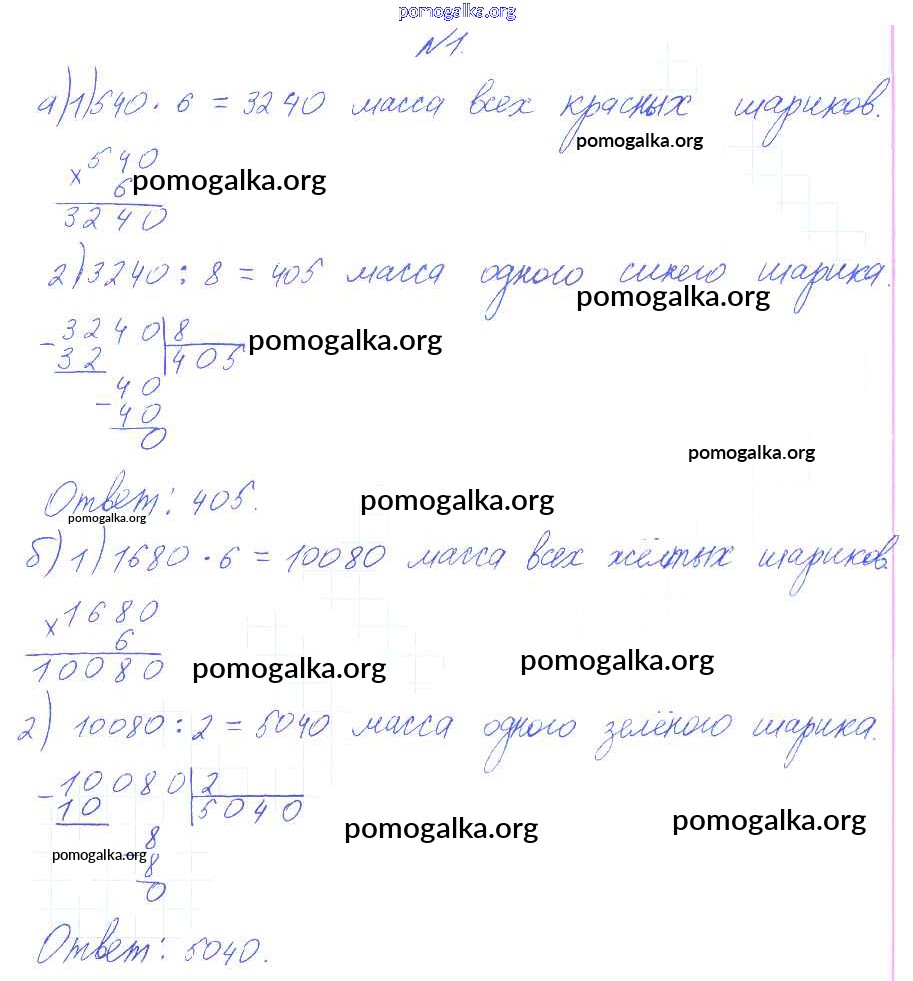 pomogalka.org
№1.
а)1)540 · 6 = 3240 масса всех красных шариков.
pomogalka.org
× 540
6 pomogalka.org
3240
2)3240 : 8 = 405 масса одного синего шарика.
pomogalka.org
- 3240 8
32 405 pomogalka.org
- 40
40
0
pomogalka.org
Ответ: 405. pomogalka.org
pomogalka.org
б) 1) 1680 · 6 = 10080 масса всех жёлтых шариков.
× 1680
6
10080 pomogalka.org pomogalka.org
2) 10080 : 2 = 5040 масса одного зелёного шарика.
- 10080 2
10 5040
pomogalka.org pomogalka.org
- 8
pomogalka.org
8
0
Ответ: 5040.